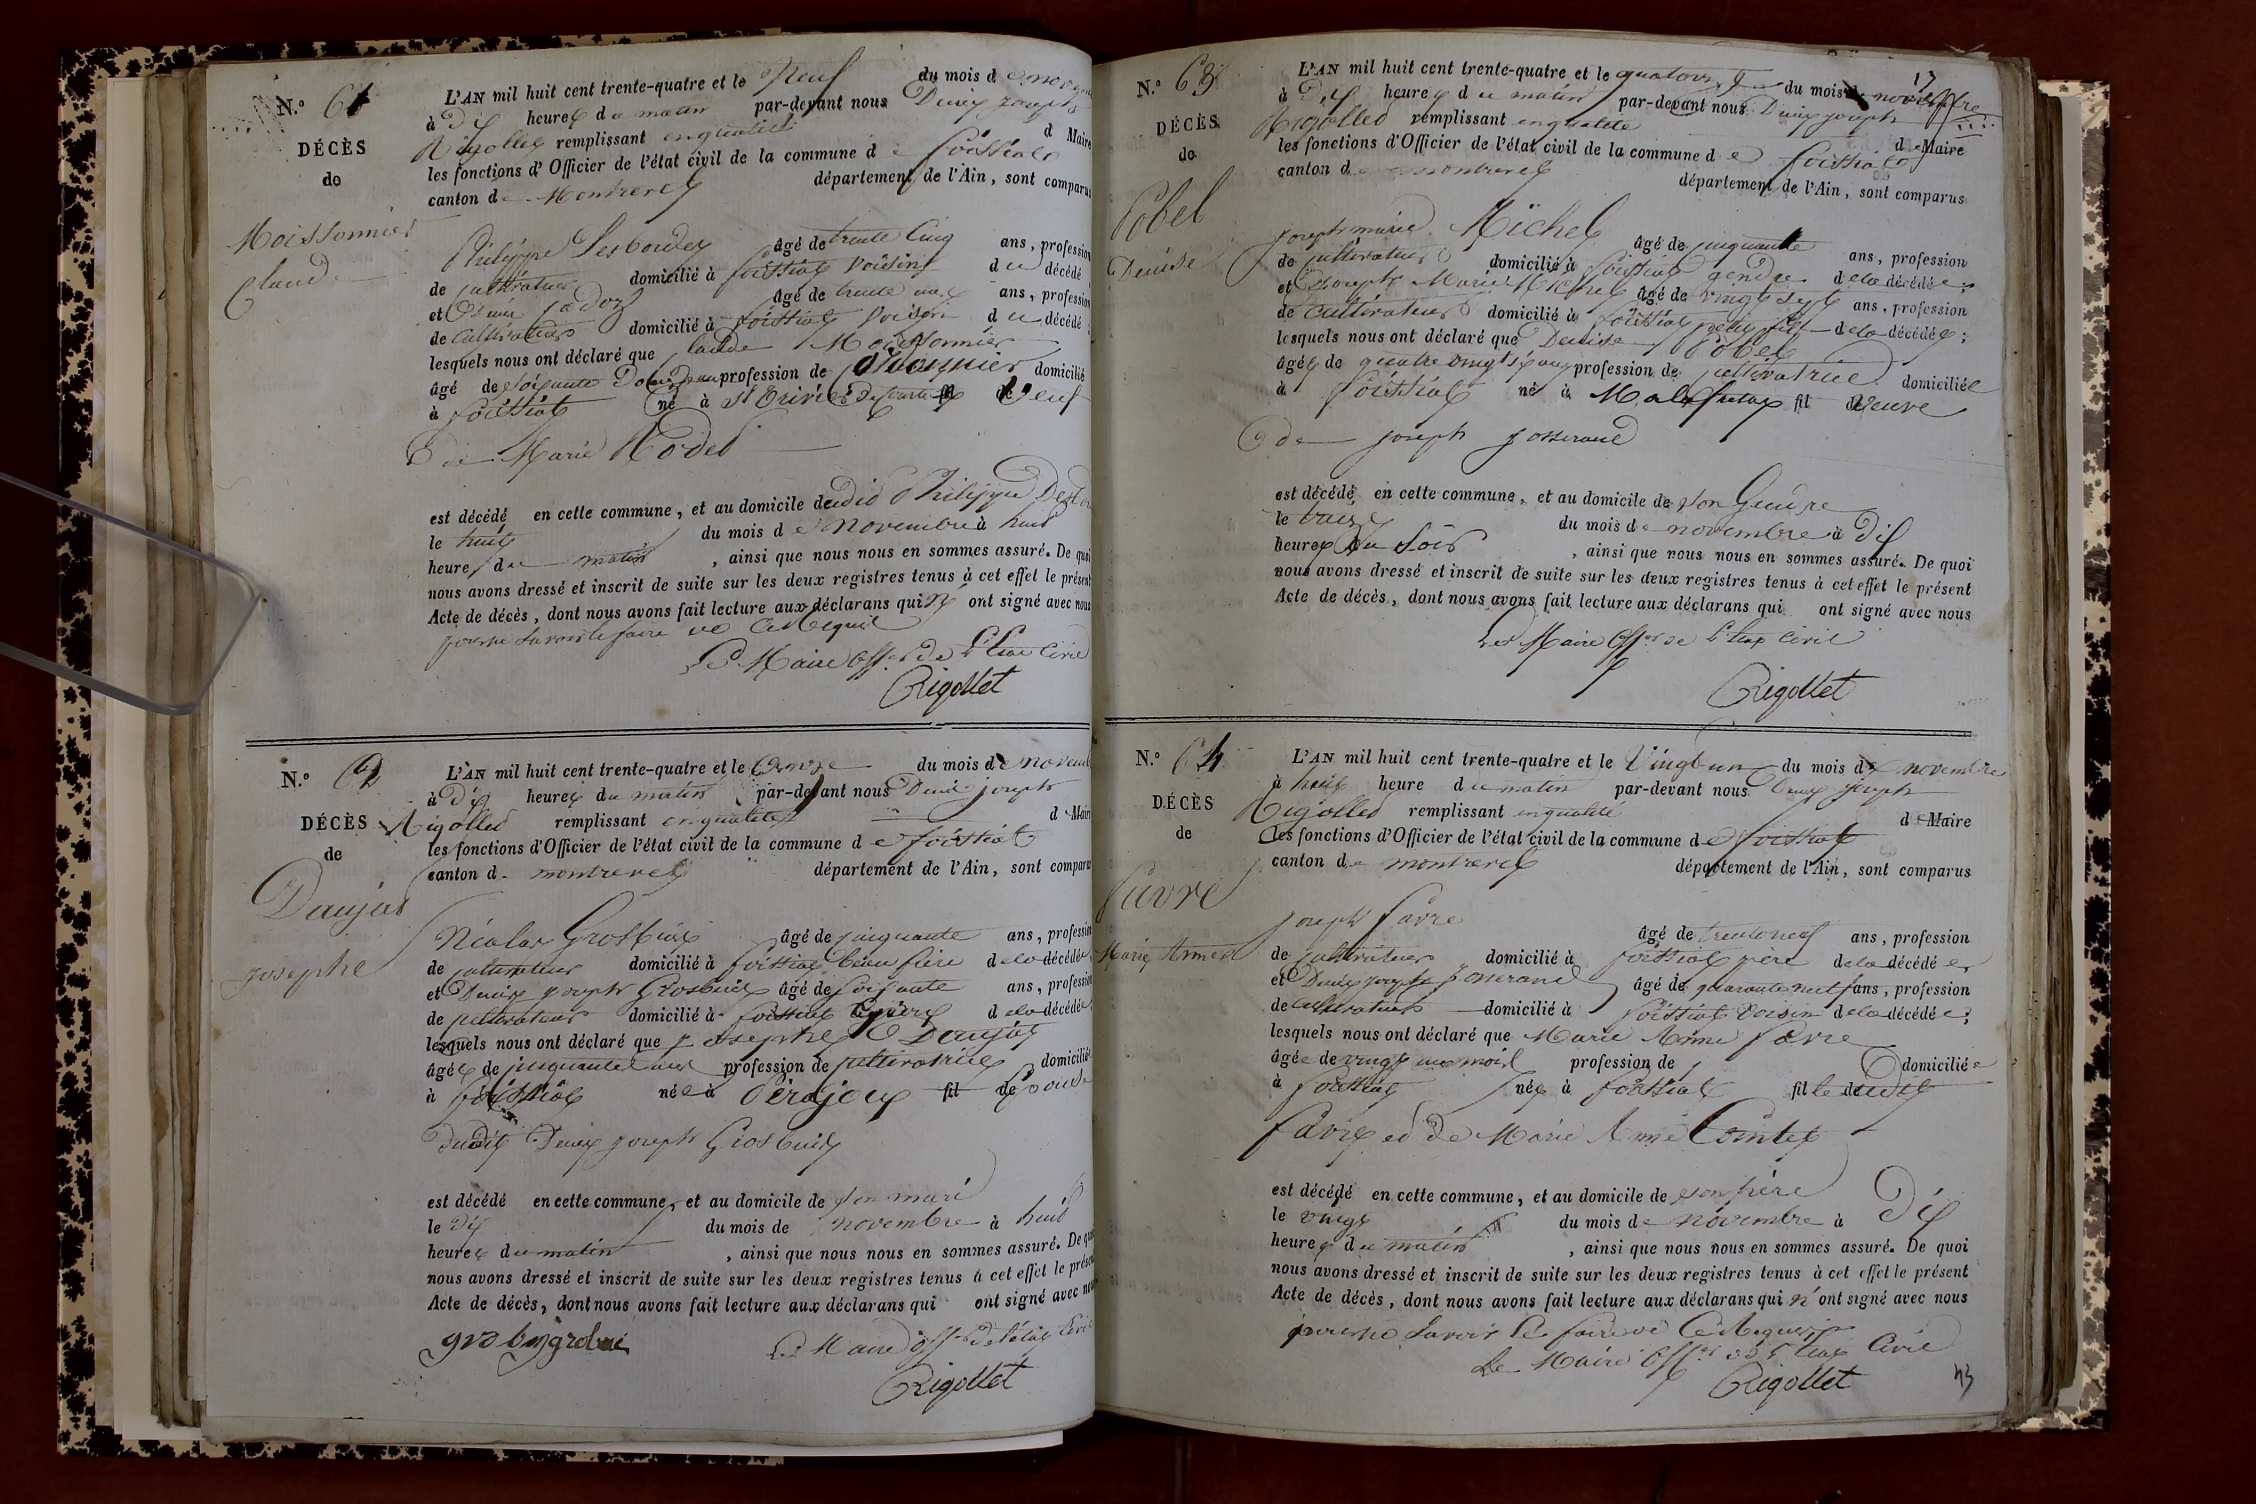 N.º 61
DÉCÈS
de
Moissonnier
Claude
L'AN mil huit cent trente-quatre et le Neuf du mois de
à Dix heures du matin par-devant nous Denis Joseph
Rigollet remplissant en qualité d Maire
les fonctions d'Officier de l'état civil de la commune de foissiat
canton de Montrevel département de l'Ain, sont comparus
Philippe Desbordes âgé de trente Cinq ans, profession
de cultivateur domicilié à foissiat voisin du décédé
et âgé de trente ans, profession
de Cultivateur domicilié à foissiat voisin du décédé
lesquels nous ont déclaré que Claude Moissonnier
âgé de Soixante ans profession de domicilié
à foissiat né à St Trivier veuf
de Marie Rodet
est décédé en cette commune, et au domicile dudit Philippe
le huit du mois de Novembre à huit
heure du matin, ainsi que nous nous en sommes assuré. De quoi
nous avons dressé et inscrit de suite sur les deux registres tenus à cet effet le présent
Acte de décès, dont nous avons fait lecture aux déclarans qui n'ont signé avec nous
pour ne savoir le faire de ce requis
Le Maire Offer de l'état Civil
Rigollet
N.º 62
DÉCÈS
de
Daujat
Josephe
L'AN mil huit cent trente-quatre et le Onze du mois de
à Dix heures du matin par-devant nous Denis Joseph
Rigollet remplissant en qualité de Maire
les fonctions d'Officier de l'état civil de la commune de foissiat
canton de montrevel département de l'Ain, sont comparus
Nicolas Grosbuis âgé de cinquante ans, profession
de cultivateur domicilié à foissiat beau frère de la décédée
et Denis Joseph Grosbuis âgé de soixante ans, profession
de cultivateur domicilié à foissiat de la décédée
lesquels nous ont déclaré que Josephe Daujat
âgée de cinquante profession de cultivatrice domiciliée
à foissiat née à Béréjoux fil de Epouse
dudit Denis Joseph Grosbuis
est décédé en cette commune, et au domicile de son mari
le dix du mois de novembre à huit
heures du matin, ainsi que nous nous en sommes assuré. De quoi
nous avons dressé et inscrit de suite sur les deux registres tenus à cet effet le présent
Acte de décès, dont nous avons fait lecture aux déclarans qui ont signé avec nous
Le Maire offer de l'état Civil
Rigollet
N.º 63
DÉCÈS
de
Pobel
Denise
L'AN mil huit cent trente-quatre et le quatorze du mois de novembre
à Dix heures du matin par-devant nous Denis Joseph
Rigollet remplissant en qualité de Maire
les fonctions d'Officier de l'état civil de la commune de foissiat
canton de montrevel département de l'Ain, sont comparus
Joseph marie Michel âgé de cinquante ans, profession
de cultivateur domicilié à foissiat gendre de la décédée
et Joseph Marie Michel âgé de vingt sept ans, profession
de cultivateur domicilié à foissiat petit fils de la décédée;
lesquels nous ont déclaré que Denise Pobel
âgée de quatre vingt six ans profession de cultivatrice domiciliée
à foissiat né à Malafretaz fil de veuve
de Joseph Josserand
est décédé en cette commune, et au domicile de son Gendre
le treize du mois de novembre à Dix
heures du Soir, ainsi que nous nous en sommes assuré. De quoi
nous avons dressé et inscrit de suite sur les deux registres tenus à cet effet le présent
Acte de décès, dont nous avons fait lecture aux déclarans qui ont signé avec nous
Le Maire Offer de l'état Civil
Rigollet
N.º 64
DÉCÈS
de
Favre
Marie Anne
L'AN mil huit cent trente-quatre et le Vingt un du mois de novembre
à huit heure du matin par-devant nous Denis Joseph
Rigollet remplissant en qualité de Maire
les fonctions d'Officier de l'état civil de la commune de foissiat
canton de montrevel département de l'Ain, sont comparus
Joseph Favre âgé de trente neuf ans, profession
de cultivateur domicilié à foissiat père de la décédée
et Denis Joseph Josserand âgé de quarante neuf ans, profession
de cultivateur domicilié à foissiat voisin de la décédée;
lesquels nous ont déclaré que Marie Anne Favre
âgée de vingt un mois profession de domiciliée
à foissiat née à foissiat fille dudit
Favre et de Marie Anne Comtet
est décédé en cette commune, et au domicile de son père
le vingt du mois de novembre à Dix
heures du matin, ainsi que nous nous en sommes assuré. De quoi
nous avons dressé et inscrit de suite sur les deux registres tenus à cet effet le présent
Acte de décès, dont nous avons fait lecture aux déclarans qui n'ont signé avec nous
pour ne savoir le faire de ce requis
Le Maire Offer de l'état Civil
Rigollet